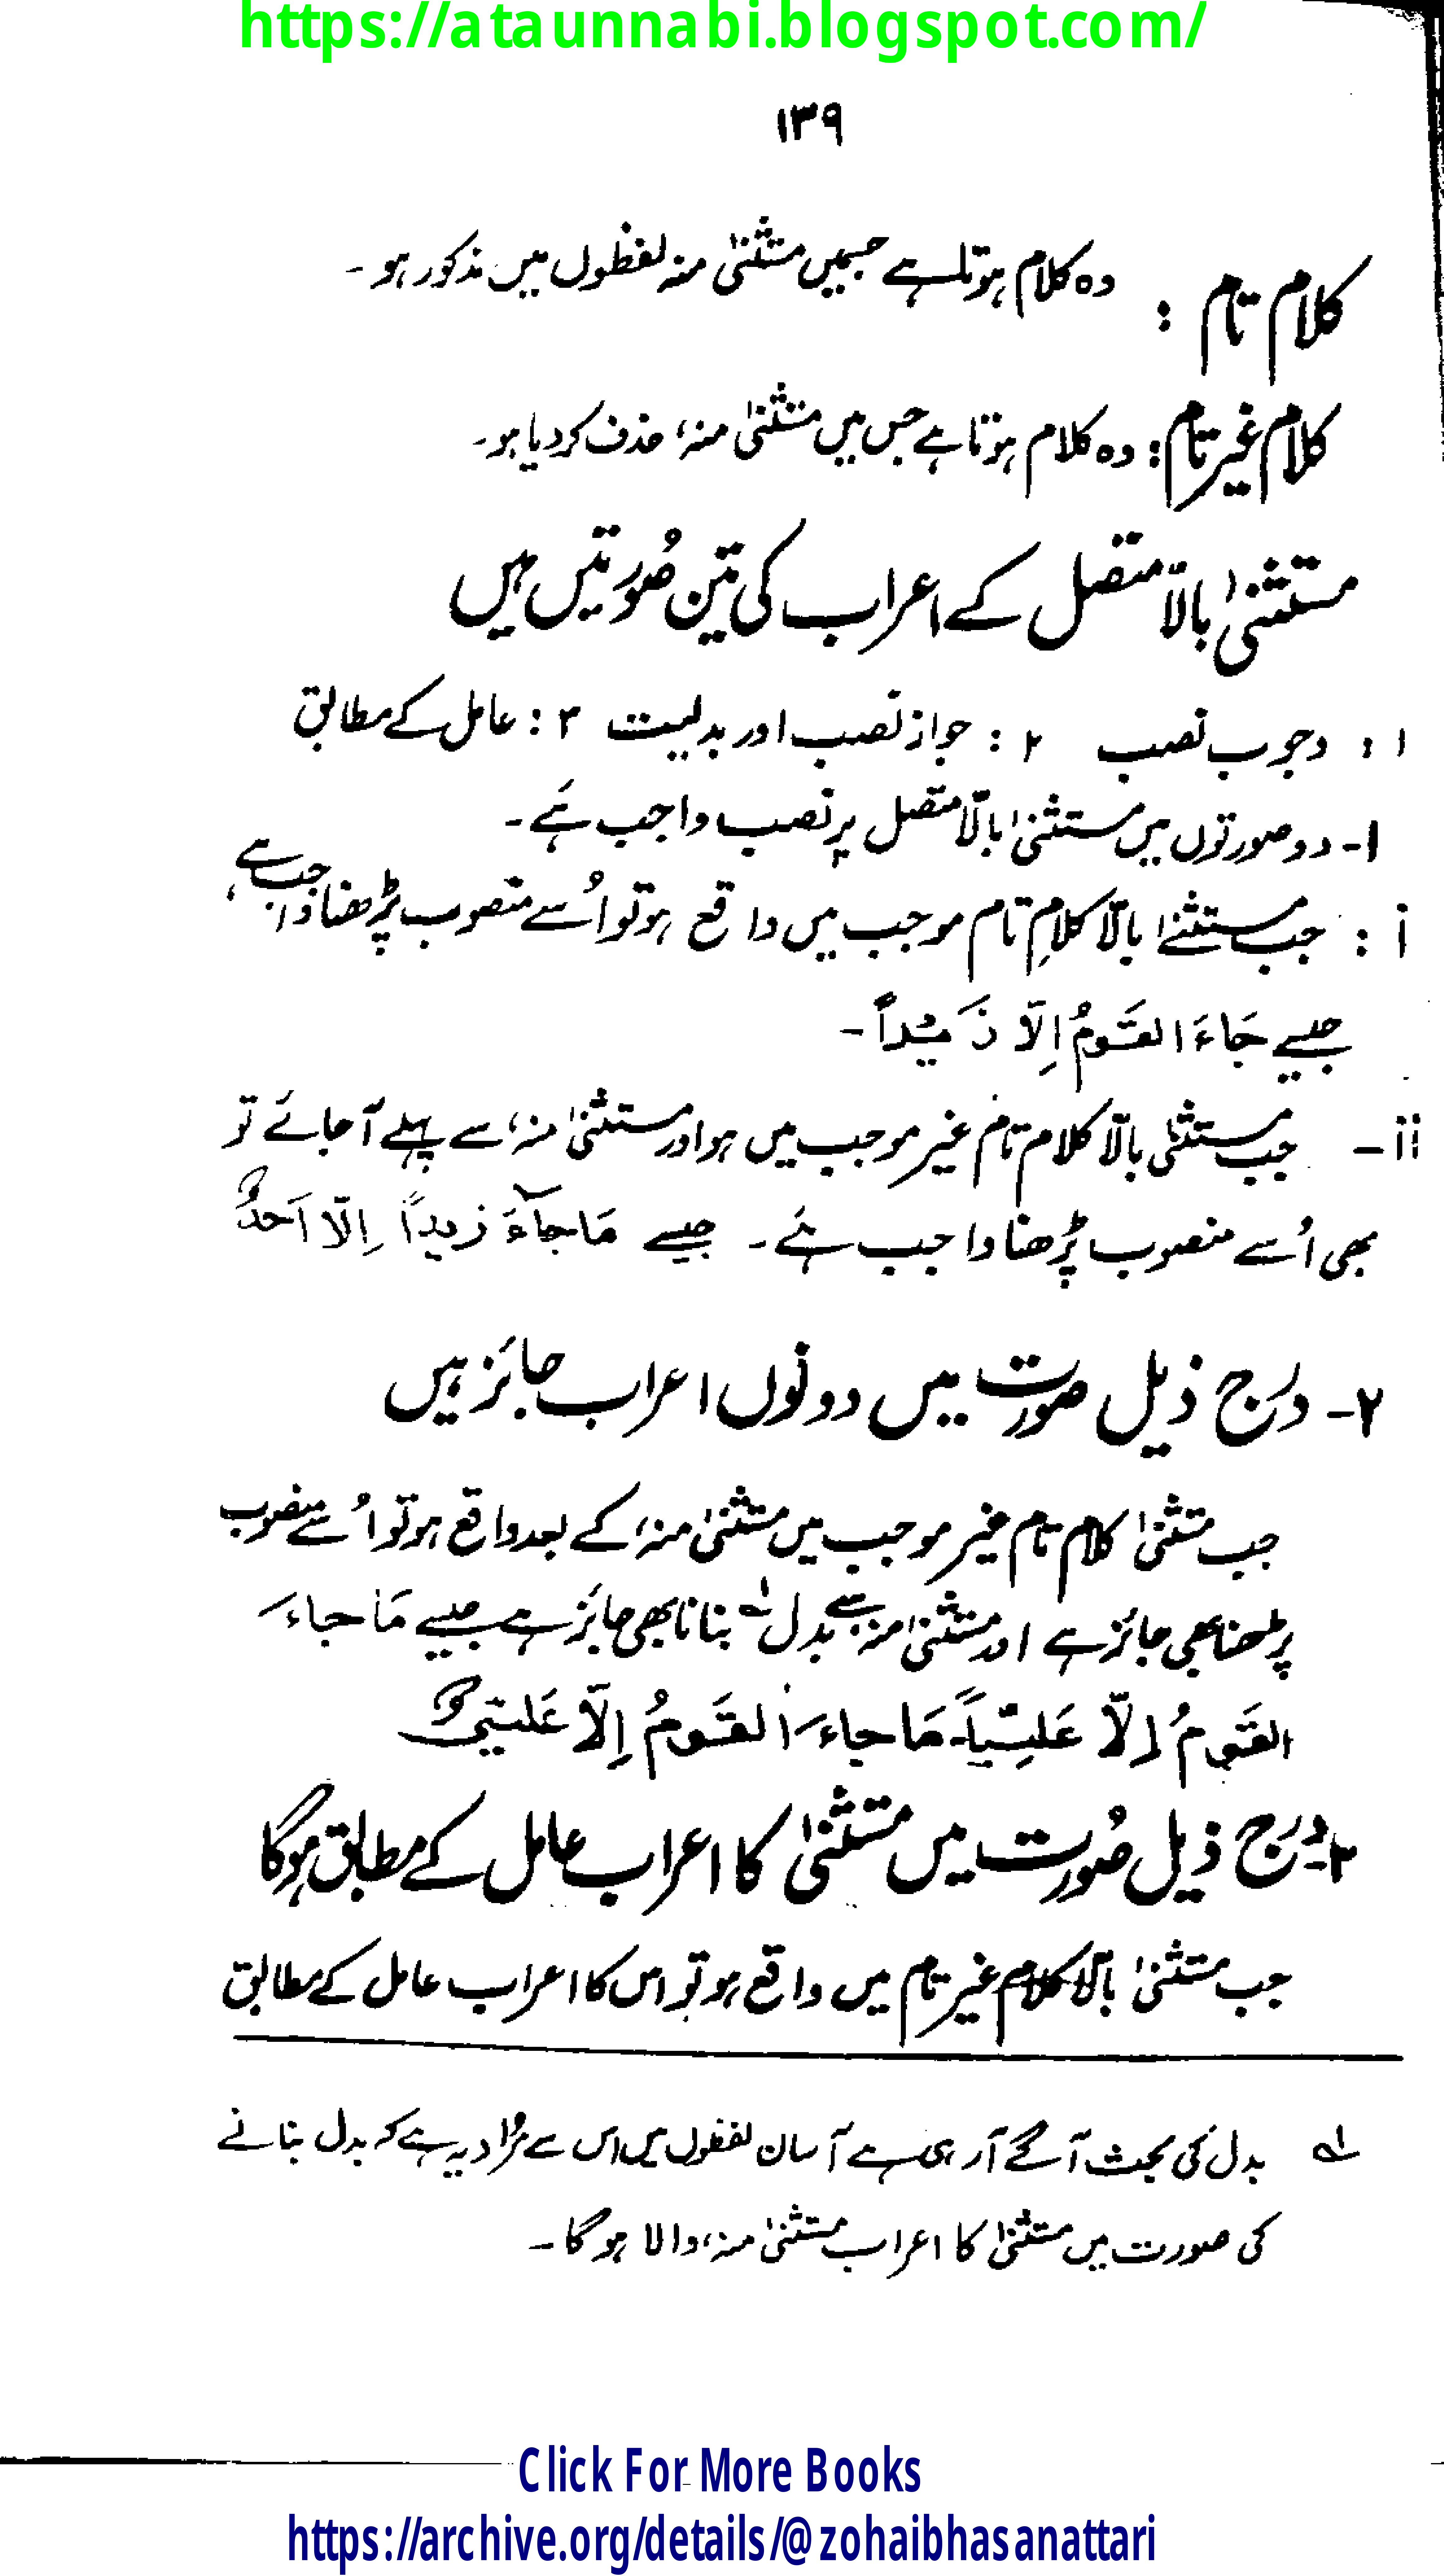 https://ataunnabi.blogspot.com/
۱۳۹
کلام تام : وہ کلام ہوتا ہے جسمیں مستثنیٰ منہ لفظوں میں مذکور ہو ۔
کلام غیر تام : وہ کلام ہوتا ہے جس میں مستثنیٰ منہ، حذف کر دیا ہو ۔
مستثنیٰ بالاّ متصل کے اعراب کی تین صُورتیں ہیں
۱ : وجوب نصب ۲ : جواز نصب اور بدلیت ۳ : عامل کے مطابق
۱- دو صورتوں میں مستثنیٰ بالّا متصل پر نصب واجب ہَے ۔
i : جب مستثنےٰ بالّا کلامِ تام موجب میں واقع ہو تو اُسے منصوب پڑھنا واجب ہے ،
جیسے جَاءَ القَومُ اِلّا زَیداً ۔
ii – جب مستثنٰی بالّا کلام تام غیر موجب میں ہو اور مستثنیٰ منہ، سے پہلے آ جائے تو
بھی اُسے منصوب پڑھنا واجب ہَے ۔ جیسے مَا جآءَ زیداً اِلّا اَحدٌ
۲- درج ذیل صورت میں دونوں اعراب جائز ہیں
جب مستثنیٰ کلام تام غیر موجب میں مستثنیٰ منہ، کے بعد واقع ہو تو اُسے منصوب
پڑھنا بھی جائز ہے اور مستثنیٰ منہ سے بدل لہ بنانا بھی جائز ہے جیسے مَا جاءَ
القَومُ اِلّا عَلِیّاً۔ مَا جاءَ القَومُ اِلّا عَلِیٌّ
۳- درج ذیل صُورت میں مستثنیٰ کا اعراب عامل کے مطابق ہوگا
جب مستثنیٰ بالّا کلام غیر تام میں واقع ہو تو اس کا اعراب عامل کے مطابق
لہ بدل کی بحث آگے آرہی ہے آسان لفظوں میں اس سے مُراد یہ ہے کہ بدل بنانے
کی صورت میں مستثنیٰ کا اعراب مستثنیٰ منہ، والا ہوگا ۔
Click For More Books
https://archive.org/details/@zohaibhasanattari